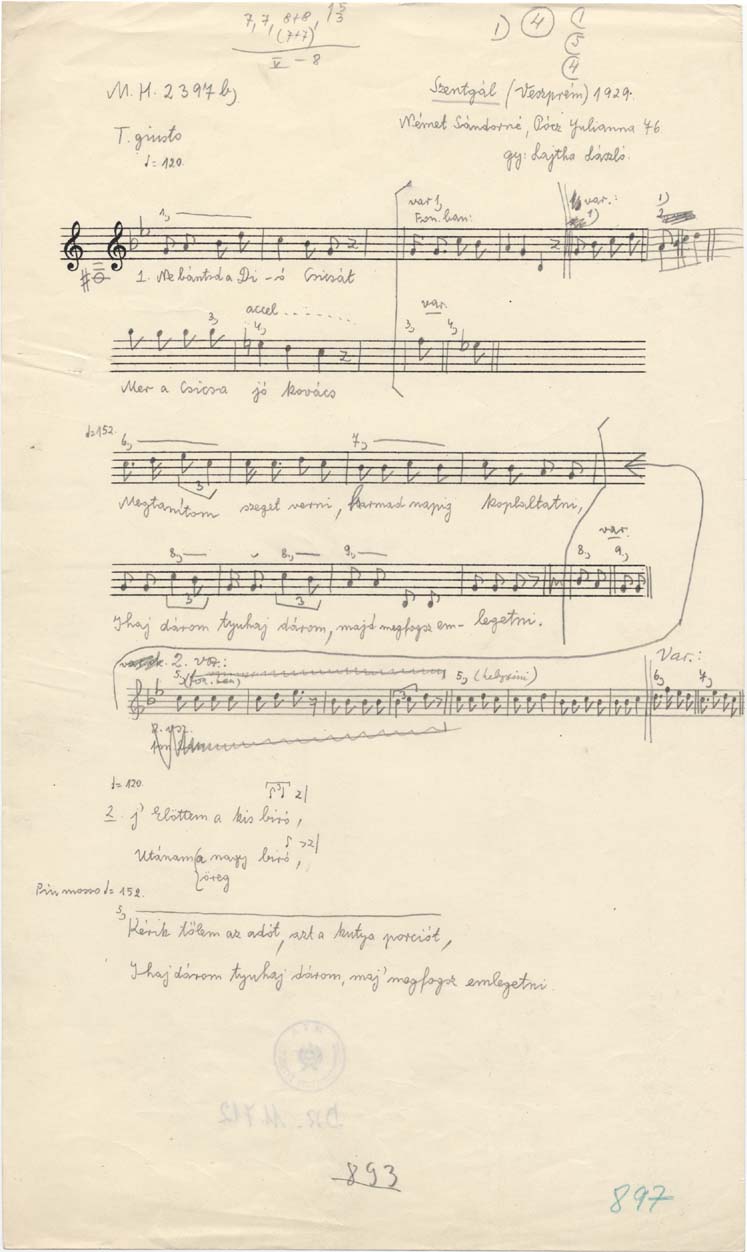 7, 7, 8+8, 15
3
(7+7)
V – 8
1) 4 1
5
4
M. H. 2397 b)
Szentgál (Veszprém) 1929.
Német Sándorné, Pócz Julianna 76
T. giusto
gy: Lajtha László.
♩= 120.
1,
var 1,
Fon. ban:
var.:
1)
1)
2
1. Ne bántsd a Di – ó Csicsát
accel.
3,
4,
var.
3, 4,
Mer a Csicsa jó kovács
♩= 152.
6,
7,
3
Megtanítom szeget verni, harmad napig koplaltatni,
var.
8, 8, 9, 8, 9,
3 3
Ihaj dárom tyuhaj dárom, majd megfogsz em– legetni.
2. var.:
Var.:
5, (fon. ban)
5, (helyszini)
6, 7,
3
♩= 120.
2. j' Elöttem a kis biró,
Utánam a nagy biró,
öreg
Piu mosso ♩= 152.
5,
Kérik tőlem az adót, azt a kutya porciót,
Ihaj dárom tyuhaj dárom, maj' megfogsz emlegetni.
893
897